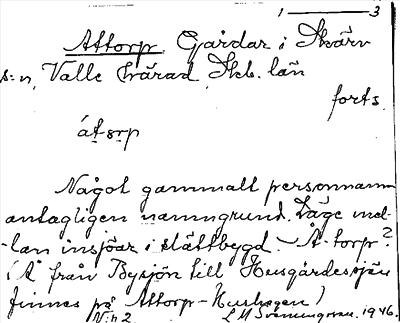 1 — 3
Attorp Gårdar i Skärv
s:n, Valle härad Skb. län
forts.
átorp
Något gammalt personnamn
antagligen namngrund. Läge mel-
-lan insjöar i slättbygd. - Å-torp?
(Å från Bysjön till Husgärdessjön
finnes på Attorp-Hushagen)
N:o 2 L M Svenungsson. 1946.